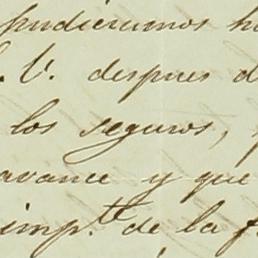 pudieramos ha
. V. despues d
los seguros,
avance y que
imp.te de la f